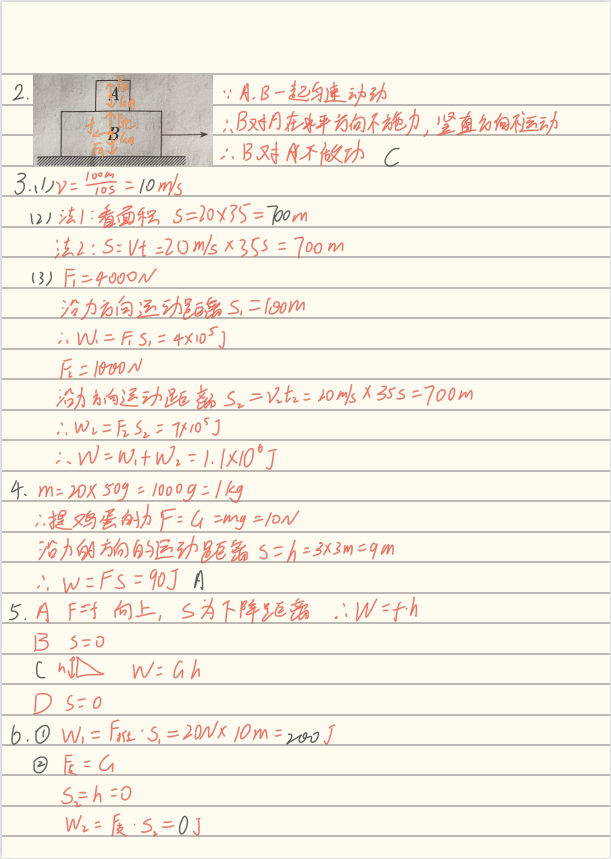 2.
A
B
∵ A.B一起匀速动动
∴B对A在水平方向不施力，竖直方向不运动
∴ B对A不做功 C
3.(1) V=100m/10s=10m/s
(2) 法1:看面积 S=20×35=700m
法2: S=Vt=20m/s×35s=700m
(3) F₁=4000N
沿力方向运动距离S₁=100m
∴W₁=F₁S₁=4×10⁵J
F₂=1000N
沿力方向运动距离 S₂=V₂t₂=20m/s×35s=700m
∴W₂=F₂S₂=7×10⁵J
∴W=W₁+W₂=1.1×10⁶J
4. m=20×50g=1000g=1kg
∴提鸡蛋的力 F=G=mg=10N
沿力的方向的运动距离 S=h=3×3m=9m
∴ W=FS=90J A
5. A F=f 向上, S为下降距离 ∴W=f·h
B S=0
C h W=Gh
D S=0
6.① W₁=F·S₁=20N×10m=200J
② F=G
S₂=h=0
W₂=F·S₂=0J